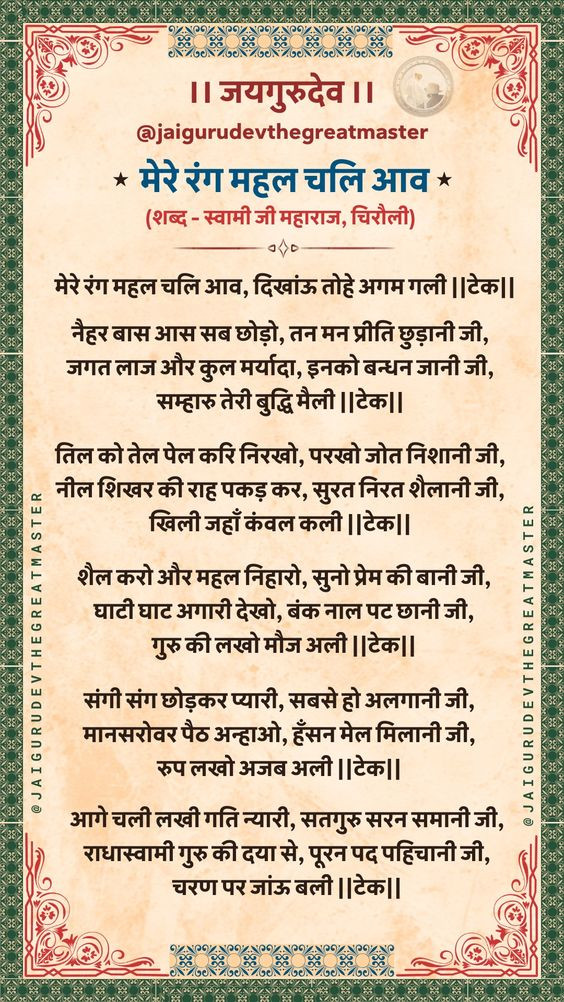 ।। जयगुरुदेव ।।
@jaigurudevthegreatmaster
★ मेरे रंग महल चलि आव ★
(शब्द - स्वामी जी महाराज, चिरौली)
मेरे रंग महल चलि आव, दिखांऊ तोहे अगम गली ||टेक||
नैहर बास आस सब छोड़ो, तन मन प्रीति छुड़ानी जी,
जगत लाज और कुल मर्यादा, इनको बन्धन जानी जी,
सम्हारु तेरी बुद्धि मैली ||टेक||
तिल को तेल पेल करि निरखो, परखो जोत निशानी जी,
नील शिखर की राह पकड़ कर, सुरत निरत शैलानी जी,
खिली जहाँ कंवल कली ||टेक||
शैल करो और महल निहारो, सुनो प्रेम की बानी जी,
घाटी घाट अगारी देखो, बंक नाल पट छानी जी,
गुरु की लखो मौज अली ||टेक||
संगी संग छोड़कर प्यारी, सबसे हो अलगानी जी,
मानसरोवर पैठ अन्हाओ, हँसन मेल मिलानी जी,
रुप लखो अजब अली ||टेक||
आगे चली लखी गति न्यारी, सतगुरु सरन समानी जी,
राधास्वामी गुरु की दया से, पूरन पद पहिचानी जी,
चरण पर जांऊ बली ||टेक||
@JAIGURUDEVTHEGREATMASTER
@JAIGURUDEVTHEGREATMASTER